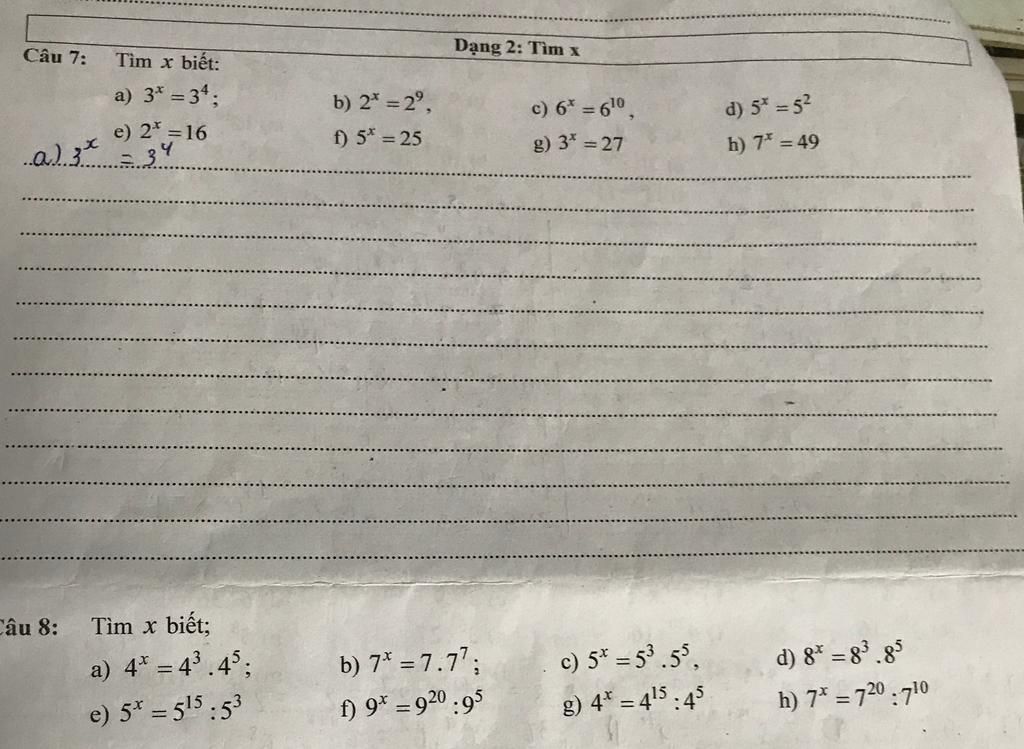 Dạng 2: Tìm x
Câu 7: Tìm x biết:
a) 3ˣ = 3⁴; b) 2ˣ = 2⁹, c) 6ˣ = 6¹⁰, d) 5ˣ = 5²
e) 2ˣ = 16 f) 5ˣ = 25 g) 3ˣ = 27 h) 7ˣ = 49
a) 3ˣ = 3⁴
Câu 8: Tìm x biết;
a) 4ˣ = 4³ . 4⁵; b) 7ˣ = 7 . 7⁷; c) 5ˣ = 5³ . 5⁵, d) 8ˣ = 8³ . 8⁵
e) 5ˣ = 5¹⁵ : 5³ f) 9ˣ = 9²⁰ : 9⁵ g) 4ˣ = 4¹⁵ : 4⁵ h) 7ˣ = 7²⁰ : 7¹⁰